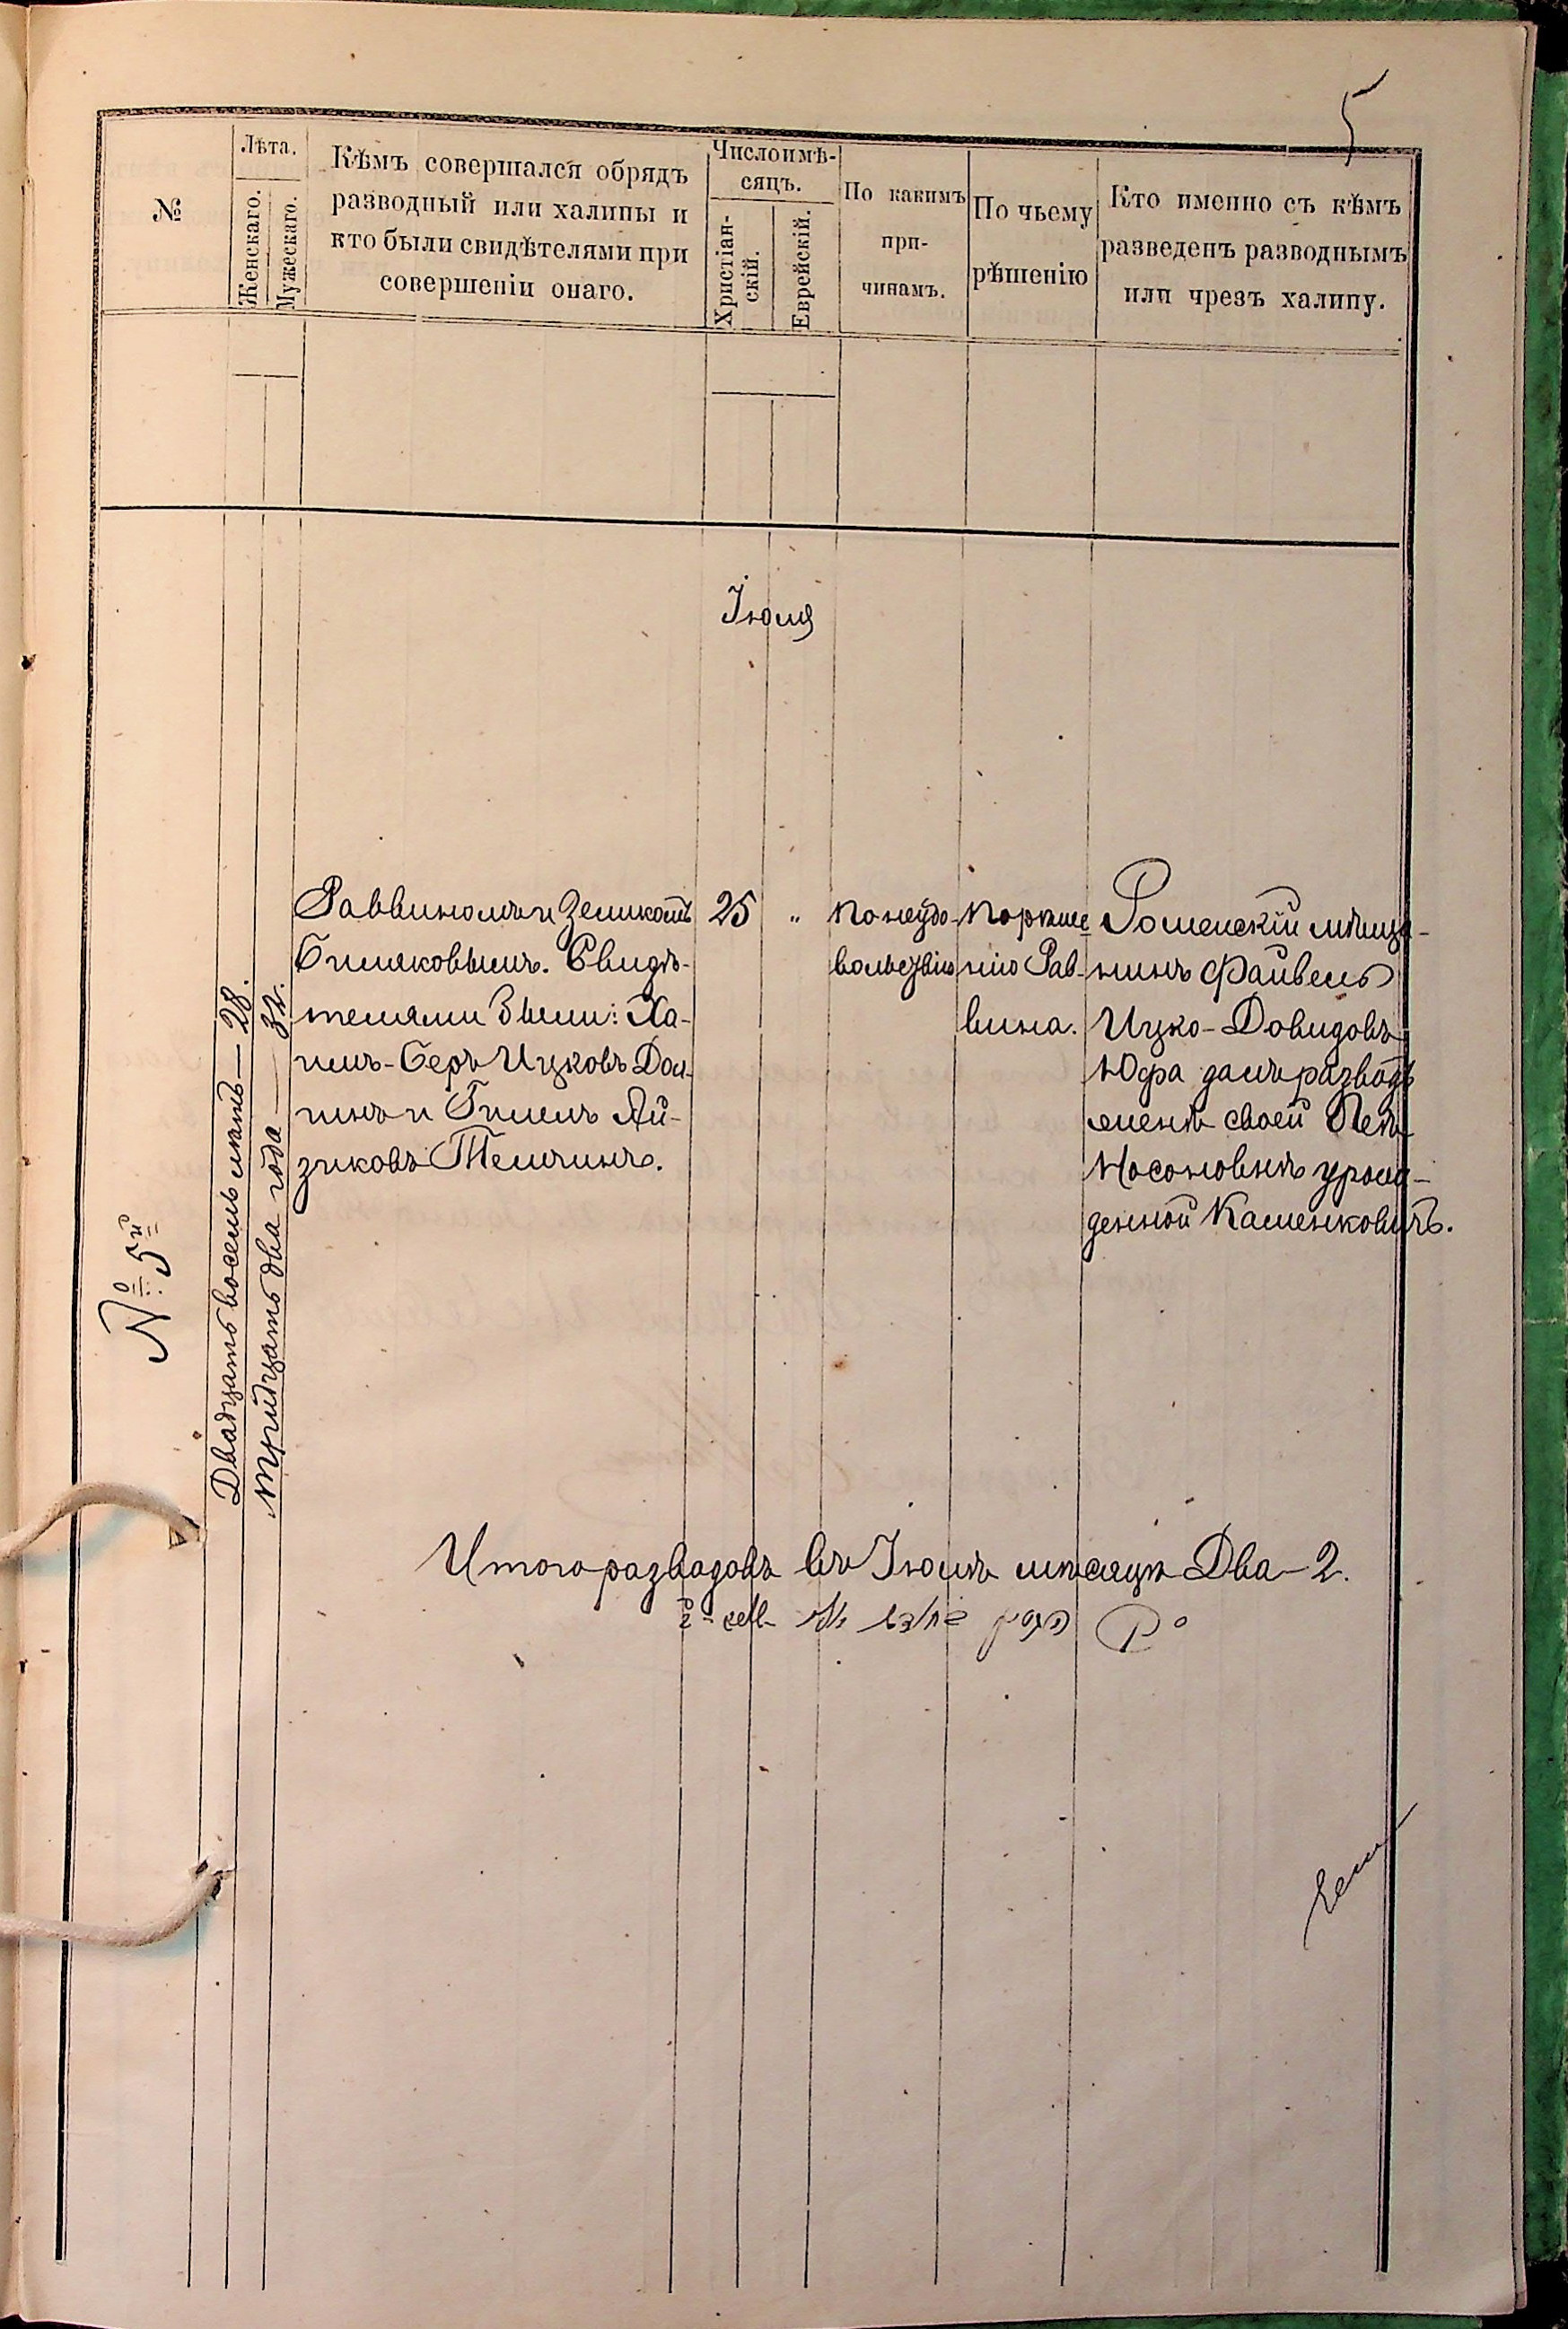 5
№
Лѣта.
Женскаго.
Мужескаго.
Кѣмъ совершался обрядъ
разводный или халицы и
кто были свидѣтелями при
совершеніи онаго.
Число и мѣ-
сяцъ.
Христіан-
скій.
Еврейскій.
По какимъ
при-
чинамъ.
По чьему
рѣшенію
Кто именно съ кѣмъ
разведенъ разводнымъ
или чрезъ халицу.
Іюля
№ 5й
Двадцать восемь лѣтъ — 28.
Тридцать два года — 32.
Раввиномъ Зеликомъ
Свидѣ-
телями были: Ха-
имъ-Беръ Ицковъ Дол-
инъ и Гилель Ай-
зиковъ
25 "
По неудо-
вольствію
По рѣше
нію Рав-
вина.
Роменскій мѣща-
нинъ Файвель
Ицко-Довидовъ
Юфа далъ разводъ
женѣ своей
Носоновнѣ урож-
денной Каменковичъ.
Итого разводовъ въ Іюлѣ мѣсяцѣ Два - 2.